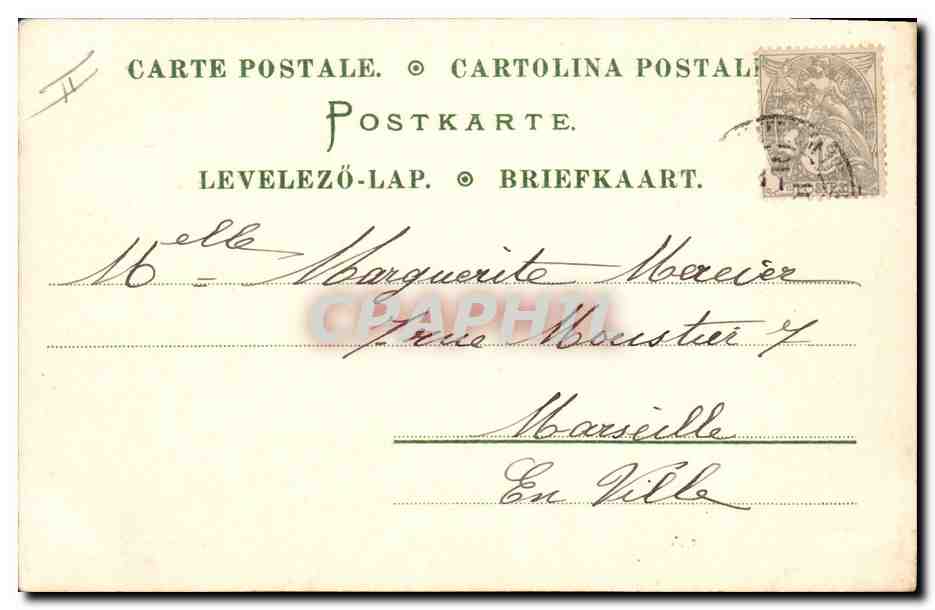 II
CARTE POSTALE. ⊙ CARTOLINA POSTAL
POSTKARTE.
LEVELEZŐ-LAP. ⊙ BRIEFKAART.
Melle Marguerite Mercier
7 rue Moustier 7
Marseille
En Ville
CPAPHIL